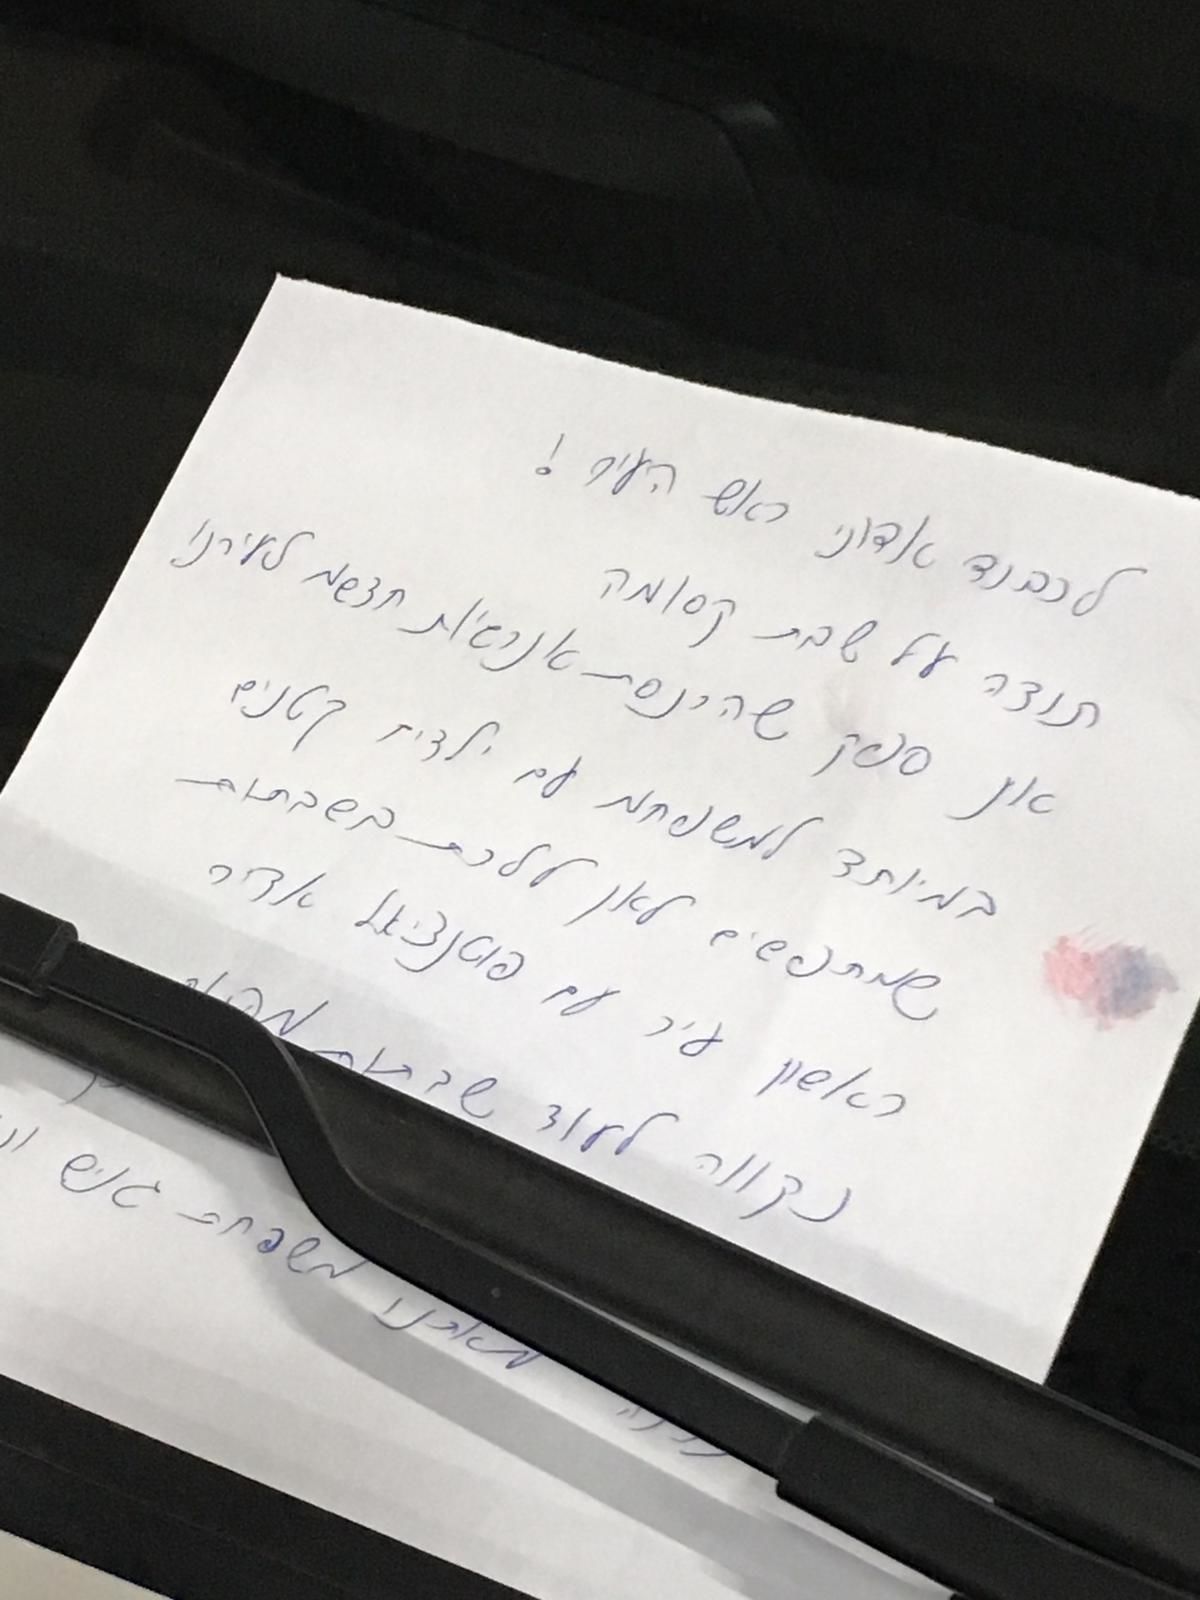 לכבוד אדוני ראש העיר!
תודה על שבת קסומה
אין ספק שהינסת אנרגיות חדשות לעירנו
במיוחד למשפחות עם ילדים קטנים
שמחפשים לאן ללכת בשבתות
ראשון עיר עם פוטנציאל אדיר
נקווה לעוד שבתות
מאיתנו משפחת